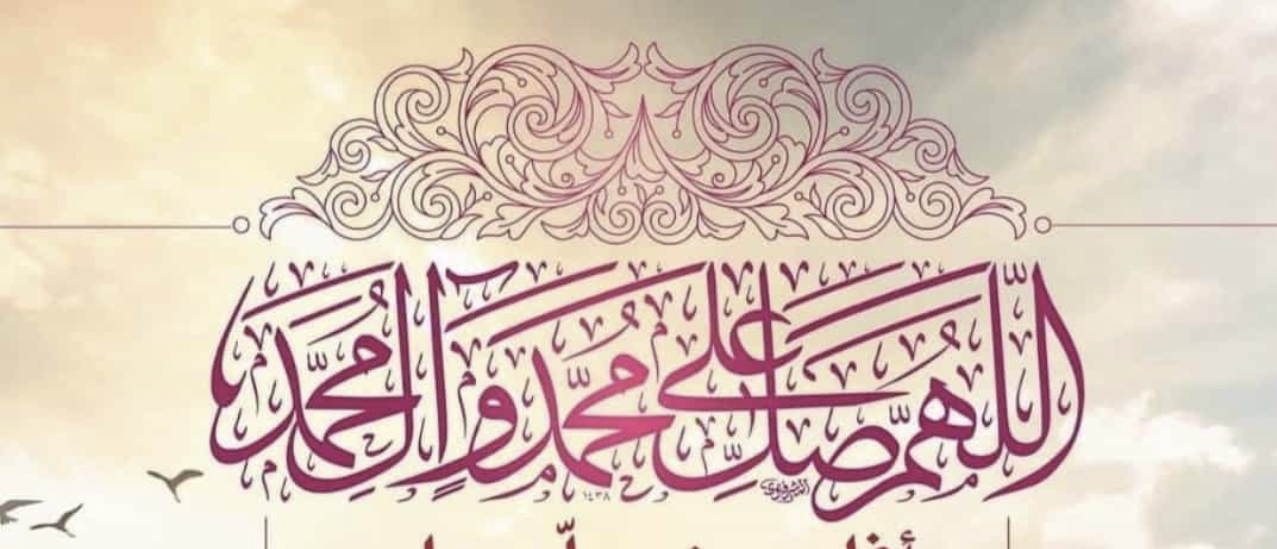 اللّهمّ صلّ على محمّد وآل محمّد
١٤٣٨